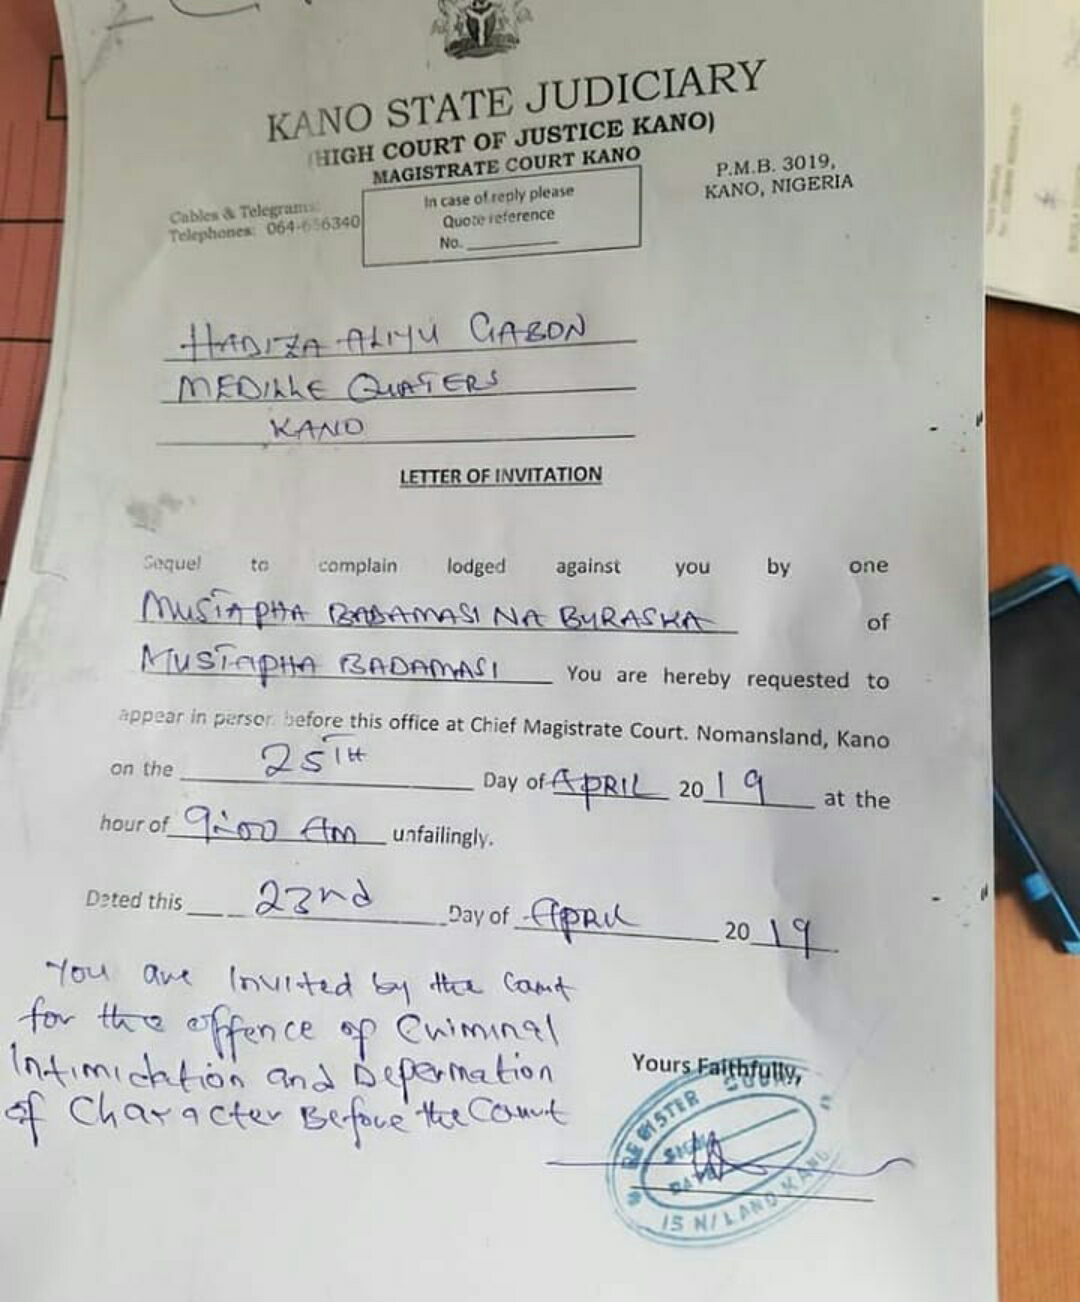 KANO STATE JUDICIARY
(HIGH COURT OF JUSTICE KANO)
MAGISTRATE COURT KANO
P.M.B. 3019,
KANO, NIGERIA
Cables & Telegrams:
Telephones: 064-656340
In case of reply please
Quote reference
No.
HADIZA ALIYU GABON
MEDILLE QUATERS
KANO
LETTER OF INVITATION
Sequel to complain lodged against you by one
MUSTAPHA BADAMASI NA BURASKA of
MUSTAPHA BADAMASI You are hereby requested to
appear in person before this office at Chief Magistrate Court. Nomansland, Kano
on the 25TH Day of APRIL 2019 at the
hour of 9:00 Am unfailingly.
Dated this 23nd Day of April 2019
You are Invited by the Court
for the offence of Criminal
Intimidation and Depermation
of Character Before the Court
Yours Faithfully,
REGISTER COURT
SIGN
DATE
15 N/LAND KANO